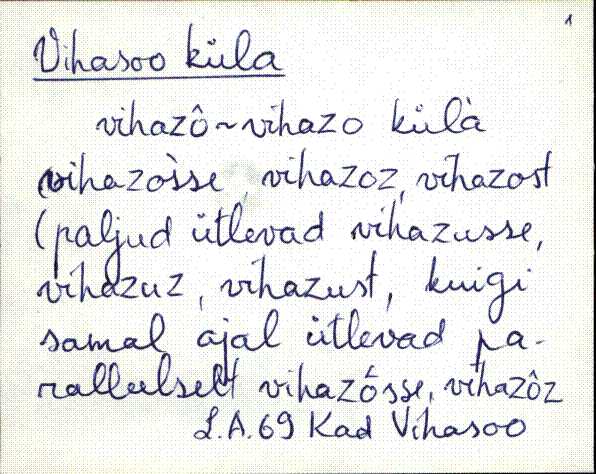 1
Vihasoo küla
vihazô ~ vihazo külà
vihazòsse, vihazoz, vihazost
(paljud ütlevad vihazusse,
vihazuz, vihazust, kuigi
samal ajal ütlevad pa-
ralleelselt vihazósse, vihazôz
L.A. 69 Kad Vihasoo